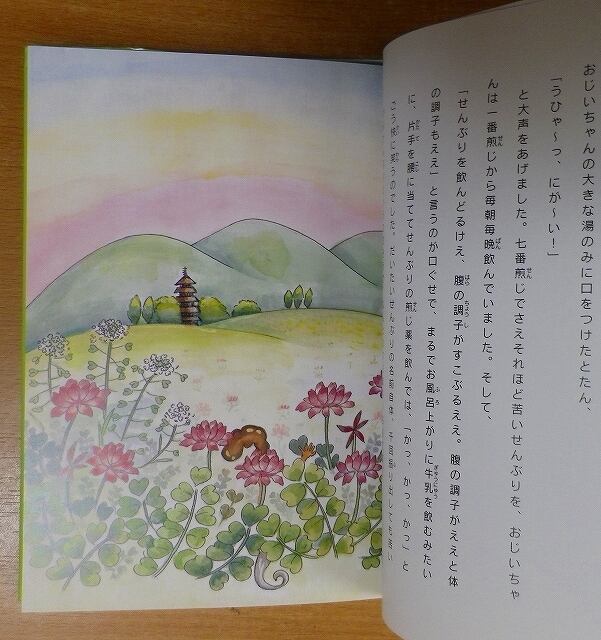 おじいちゃんの大きな湯のみに口をつけたとたん、
「うひゃ～っ、にが～い！」
と大声をあげました。七番煎じでさえそれほど苦いせんぶりを、おじいちゃ
んは一番煎じから毎朝毎晩飲んでいました。そして、
「せんぶりを飲んどるけえ、腹の調子がすこぶるええ。腹の調子がええと体
の調子もええ」と言うのが口ぐせで、まるでお風呂上がりに牛乳を飲むみたい
に、片手を腰に当ててせんぶりの煎じ薬を飲んでは、「かっ、かっ、かっ」と
ごう快に笑うのでした。だいたいせんぶりの名前自体、千回振り出しても苦い